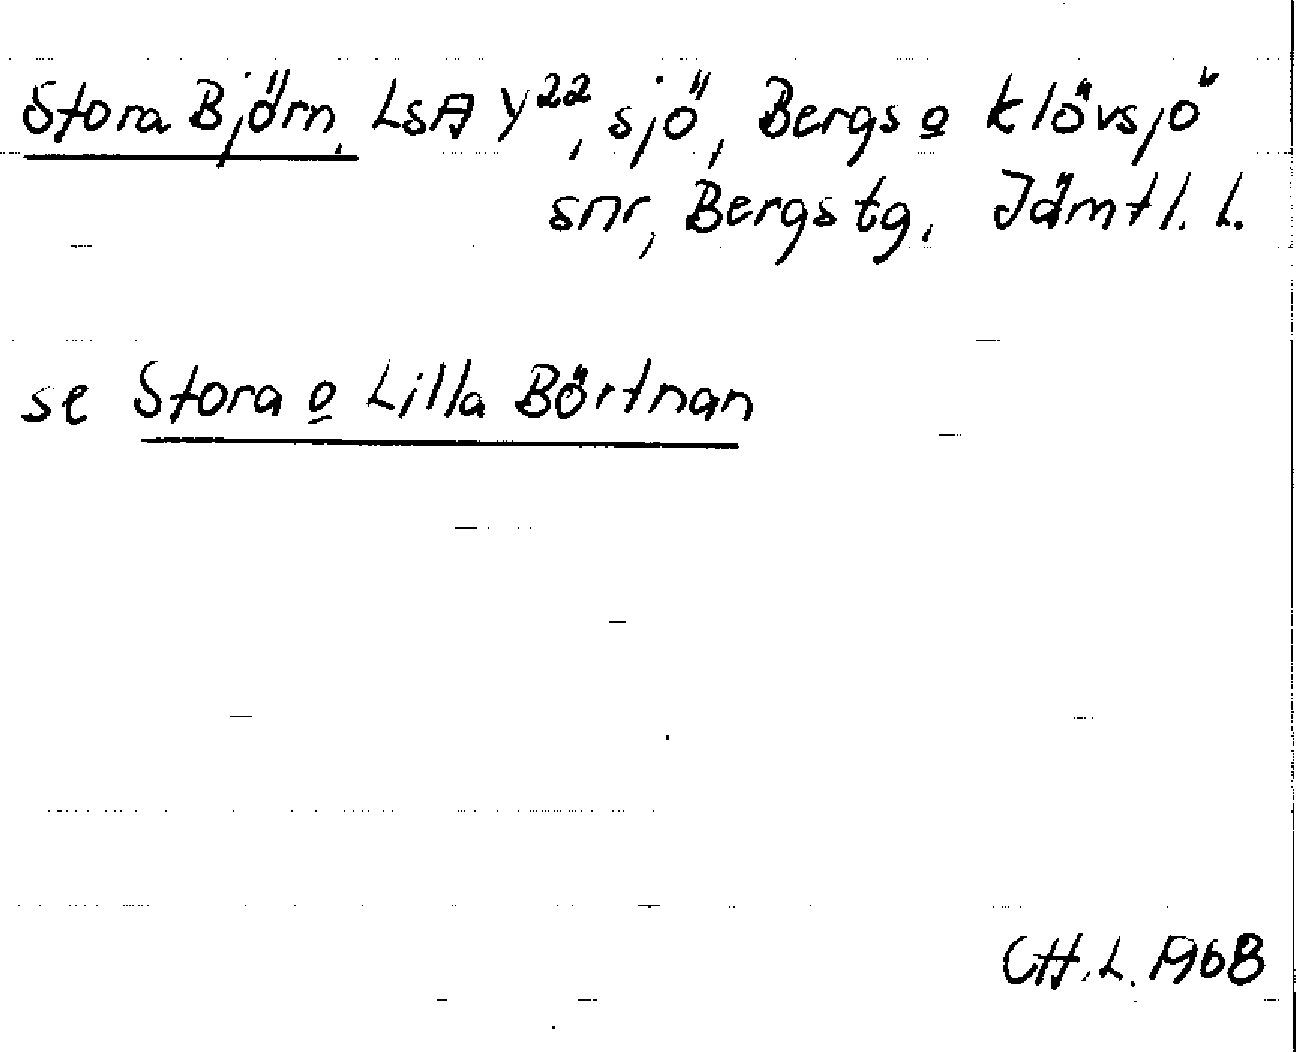 Stora Björn, LsA Y22, sjö, Bergs o Klövsjö
snr, Bergs tg, Jämtl. L.
se Stora o Lilla Börtnan
CH.L. 1968